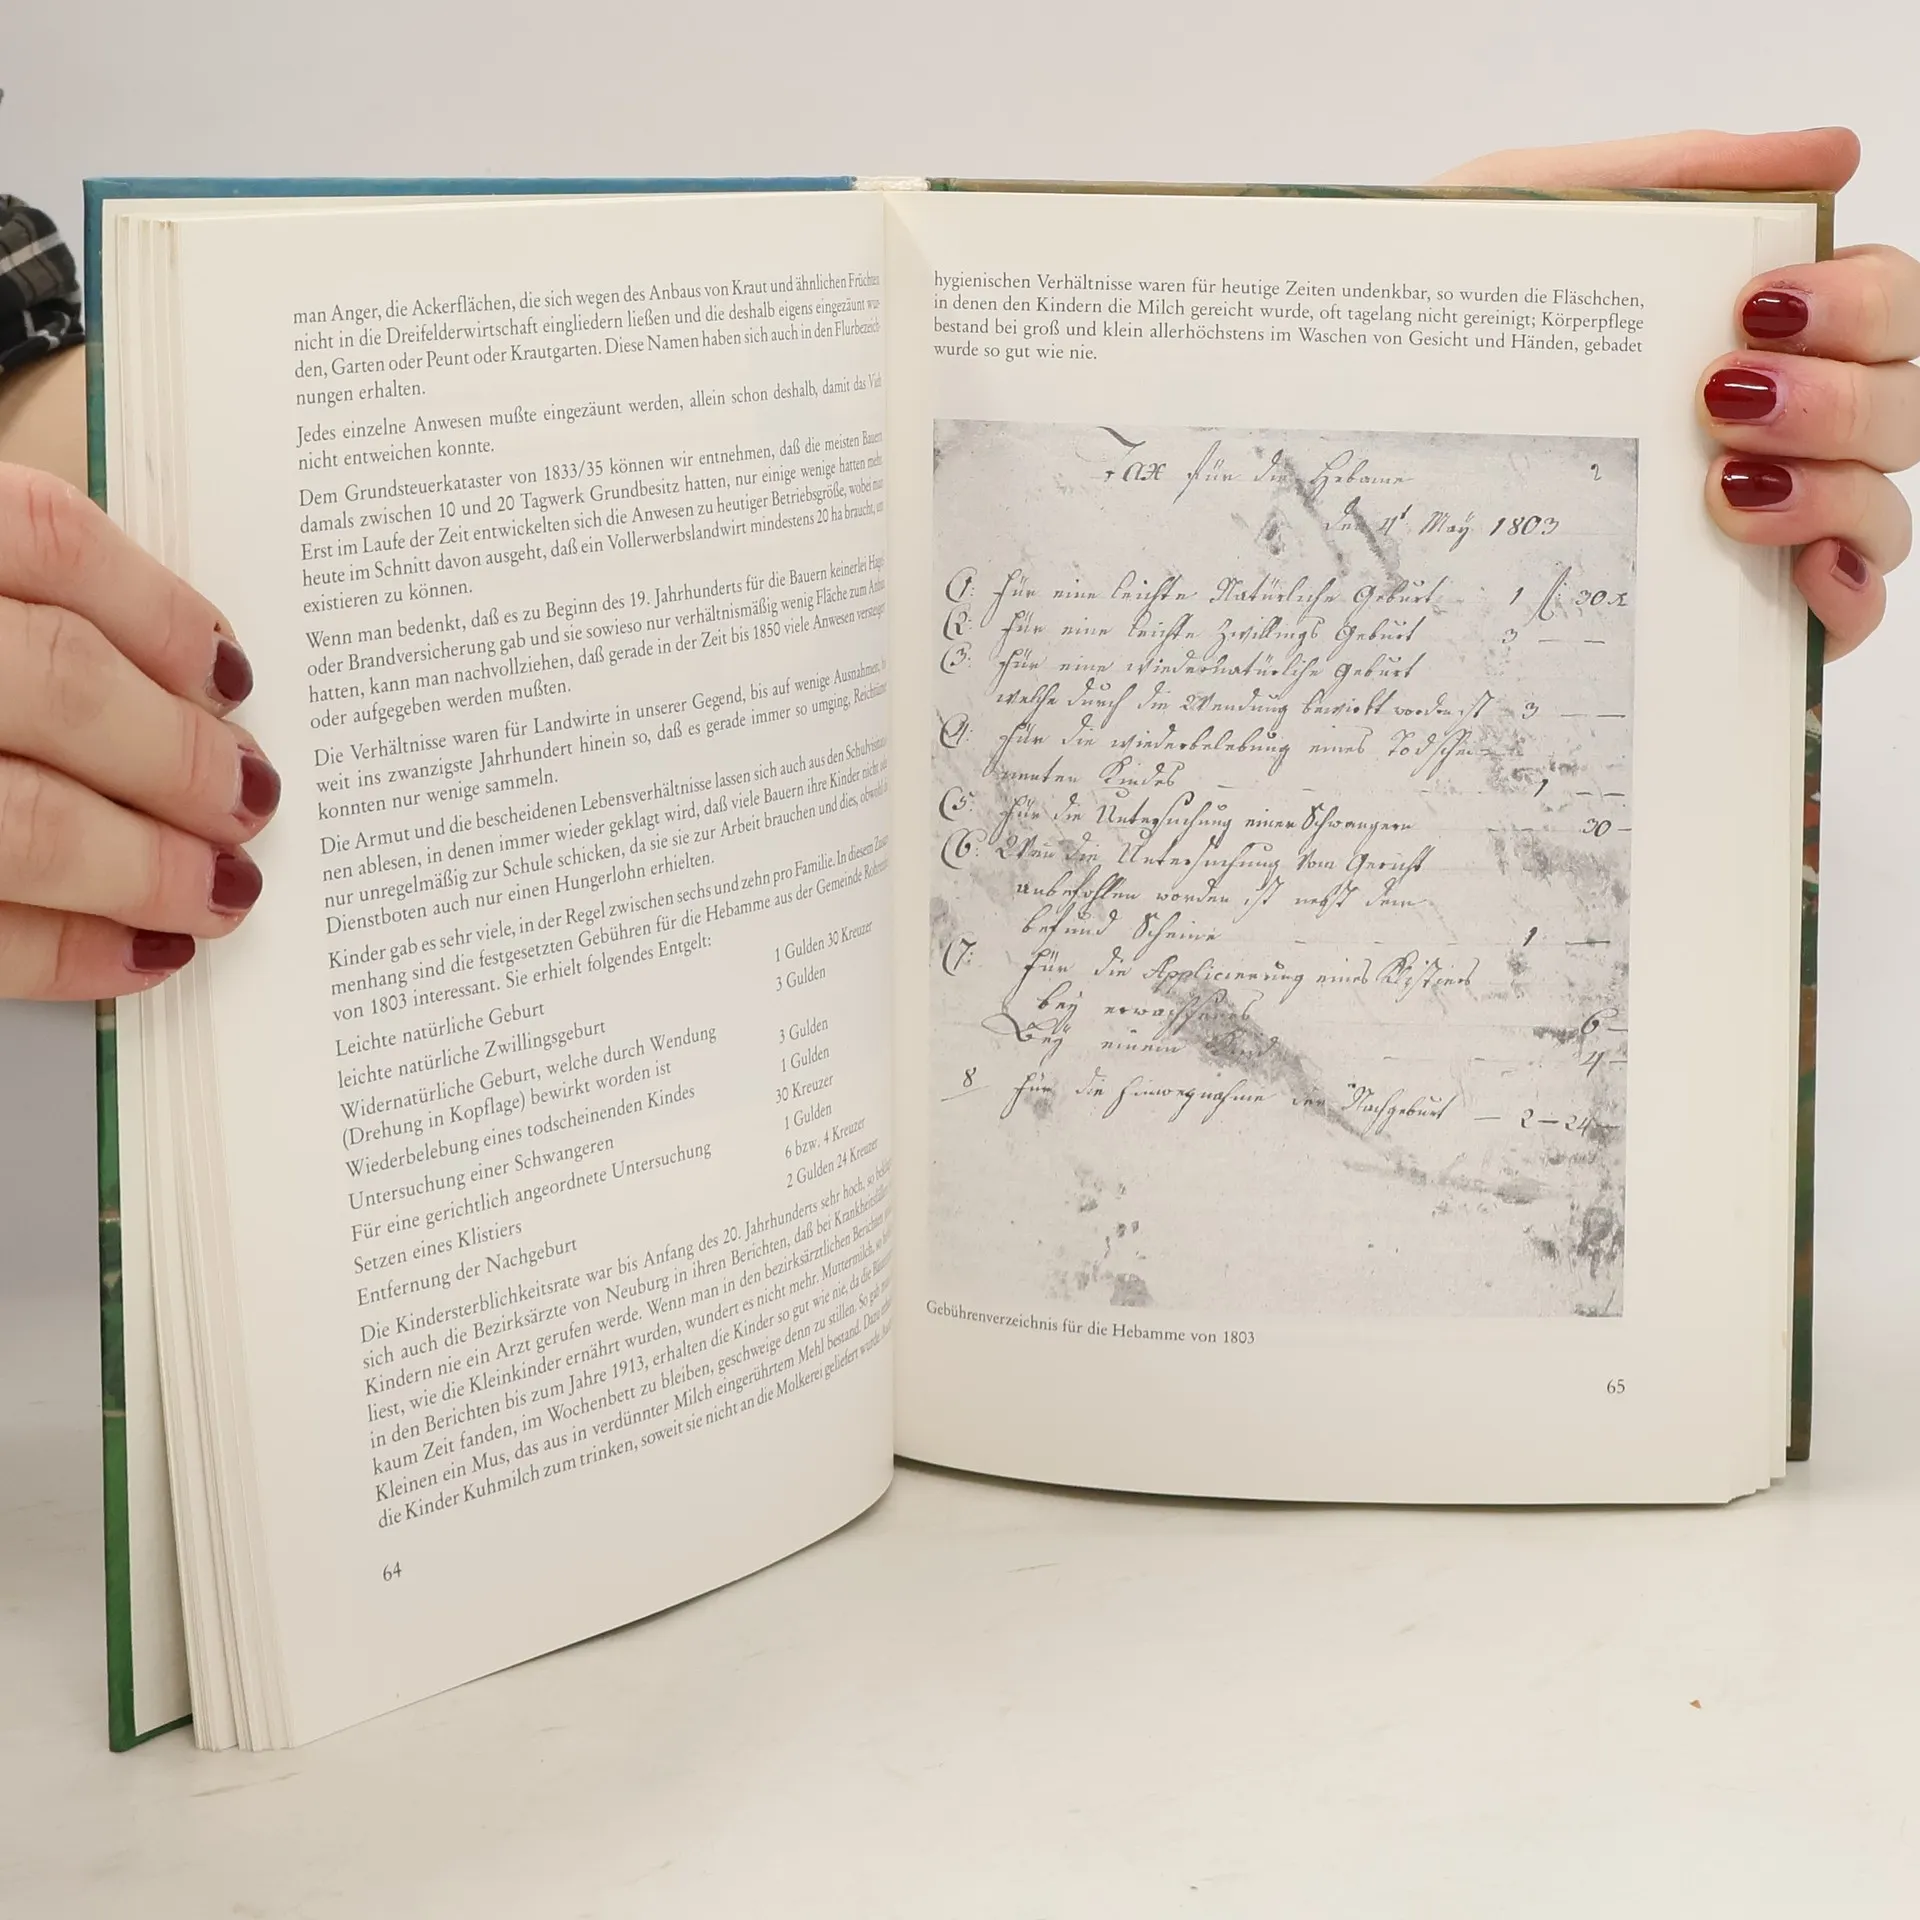 man Anger, die Ackerflächen, die sich wegen des Anbaus von Kraut und ähnlichen Früchten
nicht in die Dreifelderwirtschaft eingliedern ließen und die deshalb eigens eingezäunt wur-
den, Garten oder Peunt oder Krautgarten. Diese Namen haben sich auch in den Flurbezeich-
nungen erhalten.
Jedes einzelne Anwesen mußte eingezäunt werden, allein schon deshalb, damit das Vieh
nicht entweichen konnte.
Dem Grundsteuerkataster von 1833/35 können wir entnehmen, daß die meisten Bauern
damals zwischen 10 und 20 Tagwerk Grundbesitz hatten, nur einige wenige hatten mehr.
Erst im Laufe der Zeit entwickelten sich die Anwesen zu heutiger Betriebsgröße, wobei man
heute im Schnitt davon ausgeht, daß ein Vollerwerbslandwirt mindestens 20 ha braucht, um
existieren zu können.
Wenn man bedenkt, daß es zu Beginn des 19. Jahrhunderts für die Bauern keinerlei Hagel-
oder Brandversicherung gab und sie sowieso nur verhältnismäßig wenig Fläche zum Anbau
hatten, kann man nachvollziehen, daß gerade in der Zeit bis 1850 viele Anwesen versteigert
oder aufgegeben werden mußten.
Die Verhältnisse waren für Landwirte in unserer Gegend, bis auf wenige Ausnahmen, bis
weit ins zwanzigste Jahrhundert hinein so, daß es gerade immer so umging, Reichtümer
konnten nur wenige sammeln.
Die Armut und die bescheidenen Lebensverhältnisse lassen sich auch aus den Schulvisitatio-
nen ablesen, in denen immer wieder geklagt wird, daß viele Bauern ihre Kinder nicht oder
nur unregelmäßig zur Schule schicken, da sie sie zur Arbeit brauchen und dies, obwohl
Dienstboten auch nur einen Hungerlohn erhielten.
Kinder gab es sehr viele, in der Regel zwischen sechs und zehn pro Familie. In diesem Zusam-
menhang sind die festgesetzten Gebühren für die Hebamme aus der Gemeinde
von 1803 interessant. Sie erhielt folgendes Entgelt:
Leichte natürliche Geburt 1 Gulden 30 Kreuzer
leichte natürliche Zwillingsgeburt 3 Gulden
Widernatürliche Geburt, welche durch Wendung
(Drehung in Kopflage) bewirkt worden ist 3 Gulden
Wiederbelebung eines todscheinenden Kindes 1 Gulden
Untersuchung einer Schwangeren 30 Kreuzer
Für eine gerichtlich angeordnete Untersuchung 1 Gulden
Setzen eines Klistiers 6 bzw. 4 Kreuzer
Entfernung der Nachgeburt 2 Gulden 24 Kreuzer
Die Kindersterblichkeitsrate war bis Anfang des 20. Jahrhunderts sehr hoch, so
sich auch die Bezirksärzte von Neuburg in ihren Berichten, daß bei Krankheitsfällen
Kindern nie ein Arzt gerufen werde. Wenn man in den bezirksärztlichen Berichten
liest, wie die Kleinkinder ernährt wurden, wundert es nicht mehr. Muttermilch, so
in den Berichten bis zum Jahre 1913, erhalten die Kinder so gut wie nie, da die
kaum Zeit fanden, im Wochenbett zu bleiben, geschweige denn zu stillen. So gab man
Kleinen ein Mus, das aus in verdünnter Milch eingerührtem Mehl bestand. Dazu
die Kinder Kuhmilch zum trinken, soweit sie nicht an die Molkerei geliefert wurde.
64
hygienischen Verhältnisse waren für heutige Zeiten undenkbar, so wurden die Fläschchen,
in denen den Kindern die Milch gereicht wurde, oft tagelang nicht gereinigt; Körperpflege
bestand bei groß und klein allerhöchstens im Waschen von Gesicht und Händen, gebadet
wurde so gut wie nie.
Tax für die Hebame 2
Den 4t May 1803
1: für eine leichte Natürliche Geburt 1 f: 30 x
2: für eine leichte Zwillings Geburt 3 — —
3: für eine wiedernatürliche Geburt
welche durch die Wendung bewirkt worden ist 3 — —
4: für die wiederbelebung eines Todschei-
nenten Kindes 1 — —
5: für die Untersuchung einer Schwangern 30 —
6: Wan die Untersuchung vom Gericht
anbefohlen worden ist nebst dem
befund Scheine 1 —
7: für die Applicierung eines Klistiers
bey erwachsenes 6 —
Bey einem Kind 4 —
8 für die hinwegnahme der Nachgeburt — 2 — 24 —
Gebührenverzeichnis für die Hebamme von 1803
65